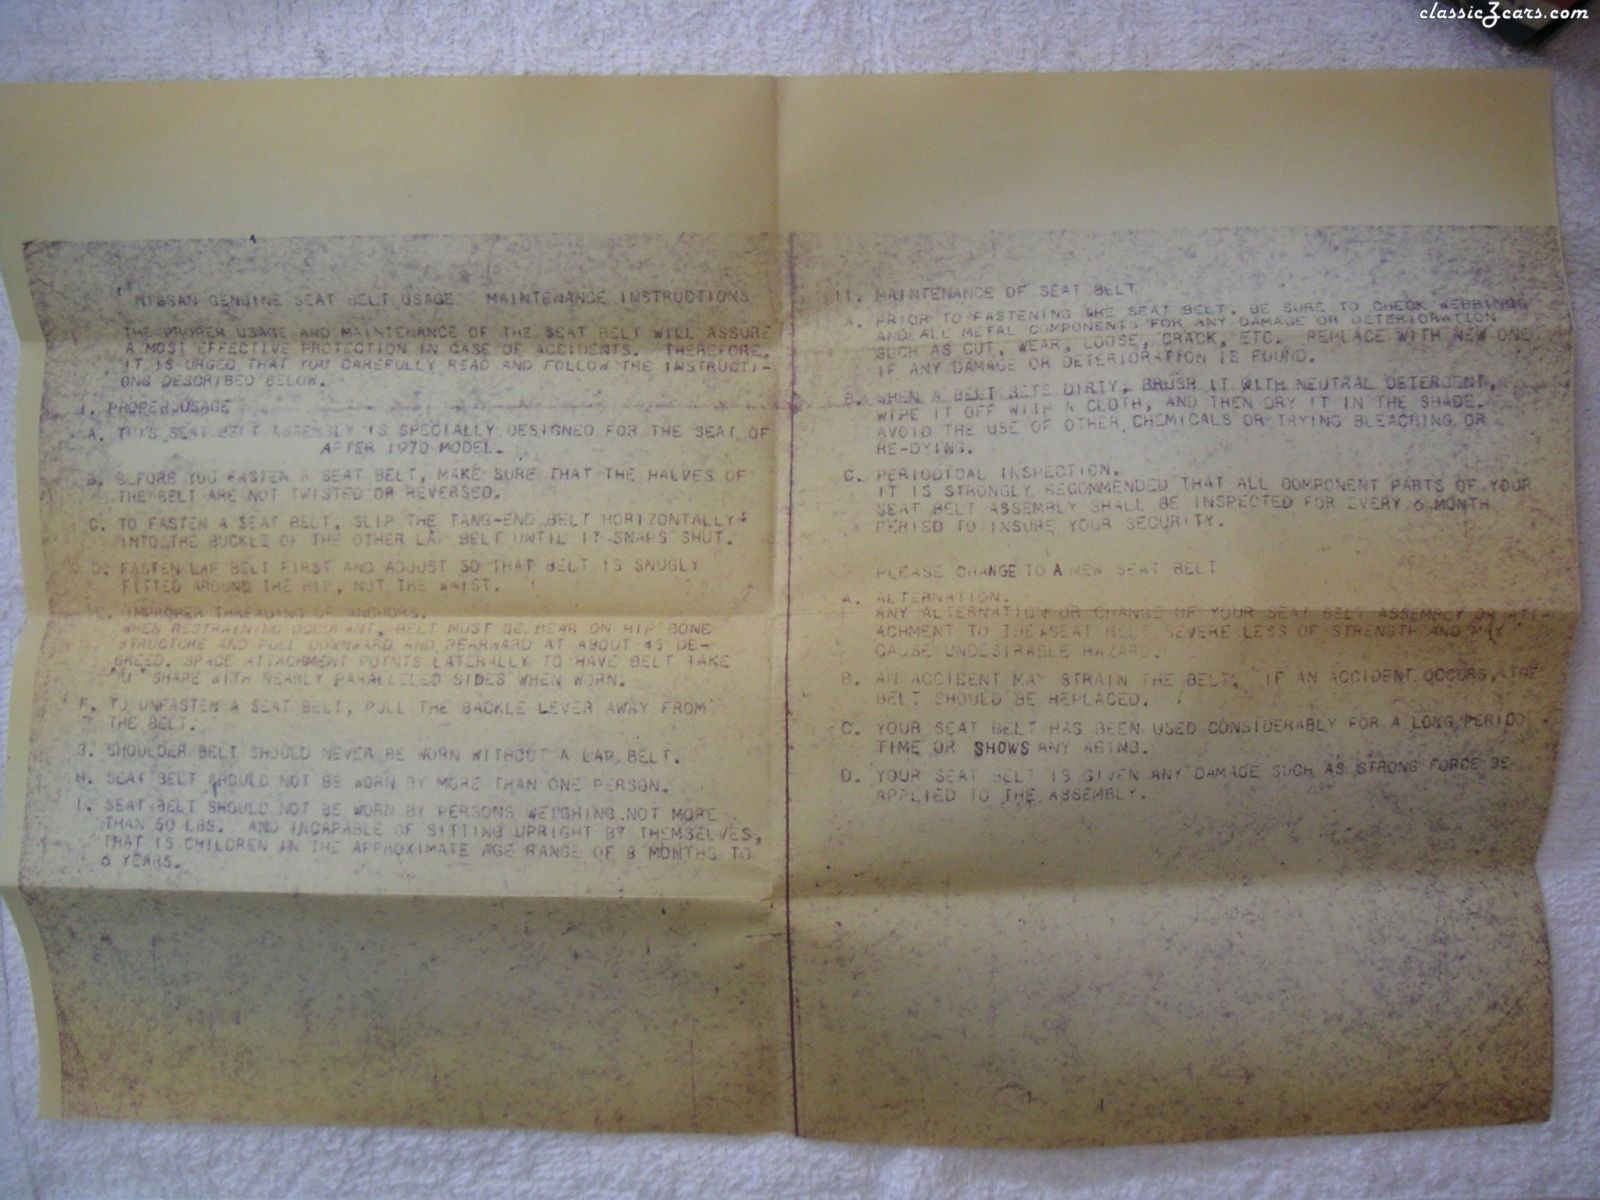 classiczcars.com
NISSAN GENUINE SEAT BELT USAGE MAINTENANCE INSTRUCTIONS
THE PROPER USAGE AND MAINTENANCE OF THE SEAT BELT WILL ASSURE
A MOST EFFECTIVE PROTECTION IN CASE OF ACCIDENTS. THEREFORE,
IT IS URGED THAT YOU CAREFULLY READ AND FOLLOW THE INSTRUCTI-
ONS DESCRIBED BELOW.
I. PROPER USAGE
A. THIS SEAT BELT ASSEMBLY IS SPECIALLY DESIGNED FOR THE SEAT OF
AFTER 1970 MODEL.
B. BEFORE YOU FASTEN A SEAT BELT, MAKE SURE THAT THE HALVES OF
THE BELT ARE NOT TWISTED OR REVERSED.
C. TO FASTEN A SEAT BELT, SLIP THE TANG-END BELT HORIZONTALLY
INTO THE BUCKLE OF THE OTHER LAP BELT UNTIL IT SNAPS SHUT.
D. FASTEN LAP BELT FIRST AND ADJUST SO THAT BELT IS SNUGLY
FITTED AROUND THE HIP, NOT THE WAIST.
E. IMPROPER THREADING OF ANCHORS.
WHEN RESTRAINING OCCUPANT, BELT MUST BE BEAR ON HIP BONE
STRUCTURE AND PULL DOWNWARD AND REARWARD AT ABOUT 45 DE-
GREED. SPACE ATTACHMENT POINTS LATERALLY TO HAVE BELT TAKE
"U" SHAPE WITH NEARLY PARALLELED SIDES WHEN WORN.
F. TO UNFASTEN A SEAT BELT, PULL THE BACKLE LEVER AWAY FROM
THE BELT.
G. SHOULDER BELT SHOULD NEVER BE WORN WITHOUT A LAP BELT.
H. SEAT BELT SHOULD NOT BE WORN BY MORE THAN ONE PERSON.
I. SEAT BELT SHOULD NOT BE WORN BY PERSONS WEIGHING NOT MORE
THAN 50 LBS. AND INCAPABLE OF SITTING UPRIGHT BY THEMSELVES,
THAT IS CHILDREN IN THE APPROXIMATE AGE RANGE OF 8 MONTHS TO
6 YEARS.
II. MAINTENANCE OF SEAT BELT
A. PRIOR TO FASTENING THE SEAT BELT, BE SURE TO CHECK WEBBINGS
AND ALL METAL COMPONENTS FOR ANY DAMAGE OR DETERIORATION
SUCH AS CUT, WEAR, LOOSE, CRACK, ETC. REPLACE WITH NEW ONE
IF ANY DAMAGE OR DETERIORATION IS FOUND.
B. WHEN A BELT GETS DIRTY, BRUSH IT WITH NEUTRAL DETERGENT,
WIPE IT OFF WITH A CLOTH, AND THEN DRY IT IN THE SHADE.
AVOID THE USE OF OTHER CHEMICALS OR TRYING BLEACHING OR
RE-DYING.
C. PERIODICAL INSPECTION.
IT IS STRONGLY RECOMMENDED THAT ALL COMPONENT PARTS OF YOUR
SEAT BELT ASSEMBLY SHALL BE INSPECTED FOR EVERY 6 MONTH
PERIOD TO INSURE YOUR SECURITY.
PLEASE CHANGE TO A NEW SEAT BELT
A. ALTERNATION.
ANY ALTERNATION OR CHANGE OF YOUR SEAT BELT ASSEMBLY OR ATT-
ACHMENT TO THE SEAT BELT SEVERE LESS OF STRENGTH AND MAY
CAUSE UNDESIRABLE HAZARD.
B. AN ACCIDENT MAY STRAIN THE BELT. IF AN ACCIDENT OCCURS, THE
BELT SHOULD BE REPLACED.
C. YOUR SEAT BELT HAS BEEN USED CONSIDERABLY FOR A LONG PERIOD
TIME OR SHOWS ANY AGING.
D. YOUR SEAT BELT IS GIVEN ANY DAMAGE SUCH AS STRONG FORCE BE
APPLIED TO THE ASSEMBLY.